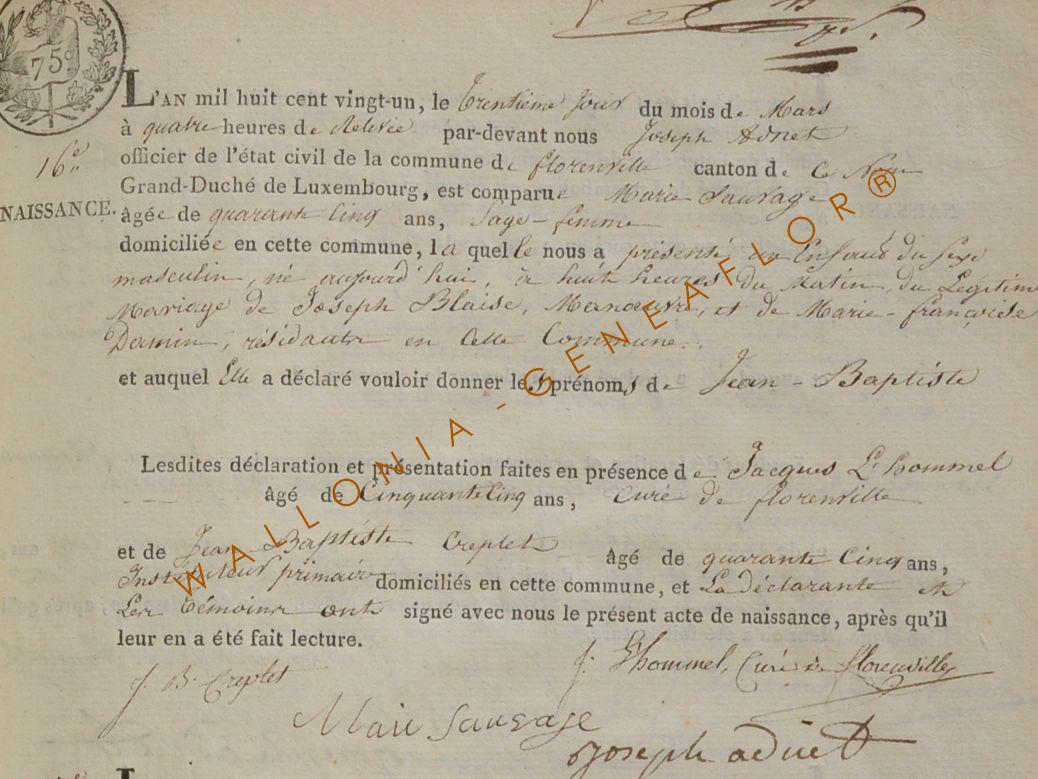 75c
L'AN mil huit cent vingt-un, le trentième jour du mois de Mars
à quatre heures de Relevée par-devant nous Joseph Adnet
officier de l'état civil de la commune de florenville canton de Ce Nom
16e
Grand-Duché de Luxembourg, est comparue Marie Sauvage
NAISSANCE.
âgée de quarante Cinq ans, Sage-femme
domiciliée en cette commune, laquelle nous a présenté un Enfant du sexe
masculin, né aujourd'hui, à huit heures du Matin, du Légitime
Mariage de Joseph Blaise, Manœuvre, et de Marie-françoise
Damin, résidants en Cette Commune.
et auquel Elle a déclaré vouloir donner les prénoms de Jean-Baptiste
Lesdites déclaration et présentation faites en présence de Jacques L'hommel
âgé de Cinquante Cinq ans, Curé de florenville
et de Jean-Baptiste Creplet âgé de quarante Cinq ans,
Instituteur primaire domiciliés en cette commune, et La déclarante et
Les témoins ont signé avec nous le présent acte de naissance, après qu'il
leur en a été fait lecture.
J. B. Creplet
J. L'hommel, Curé de florenville
Marie Sauvage
Joseph adnet
WALLONIA-GENEAFLOR®